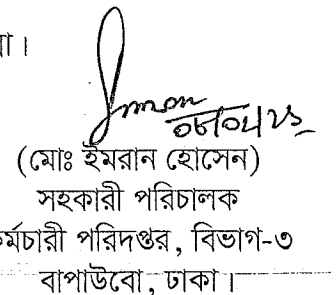 য়া।
(মোঃ ইমরান হোসেন)
সহকারী পরিচালক
কর্মচারী পরিদপ্তর, বিভাগ-৩
বাপাউবো, ঢাকা।